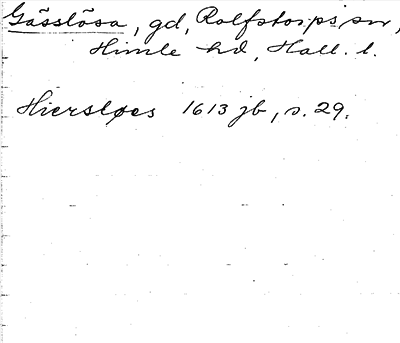 Gässlösa, gd, Rolfstorps sn,
Himle hd, Hall. l.
Hiersløes 1613 jb, s. 29.